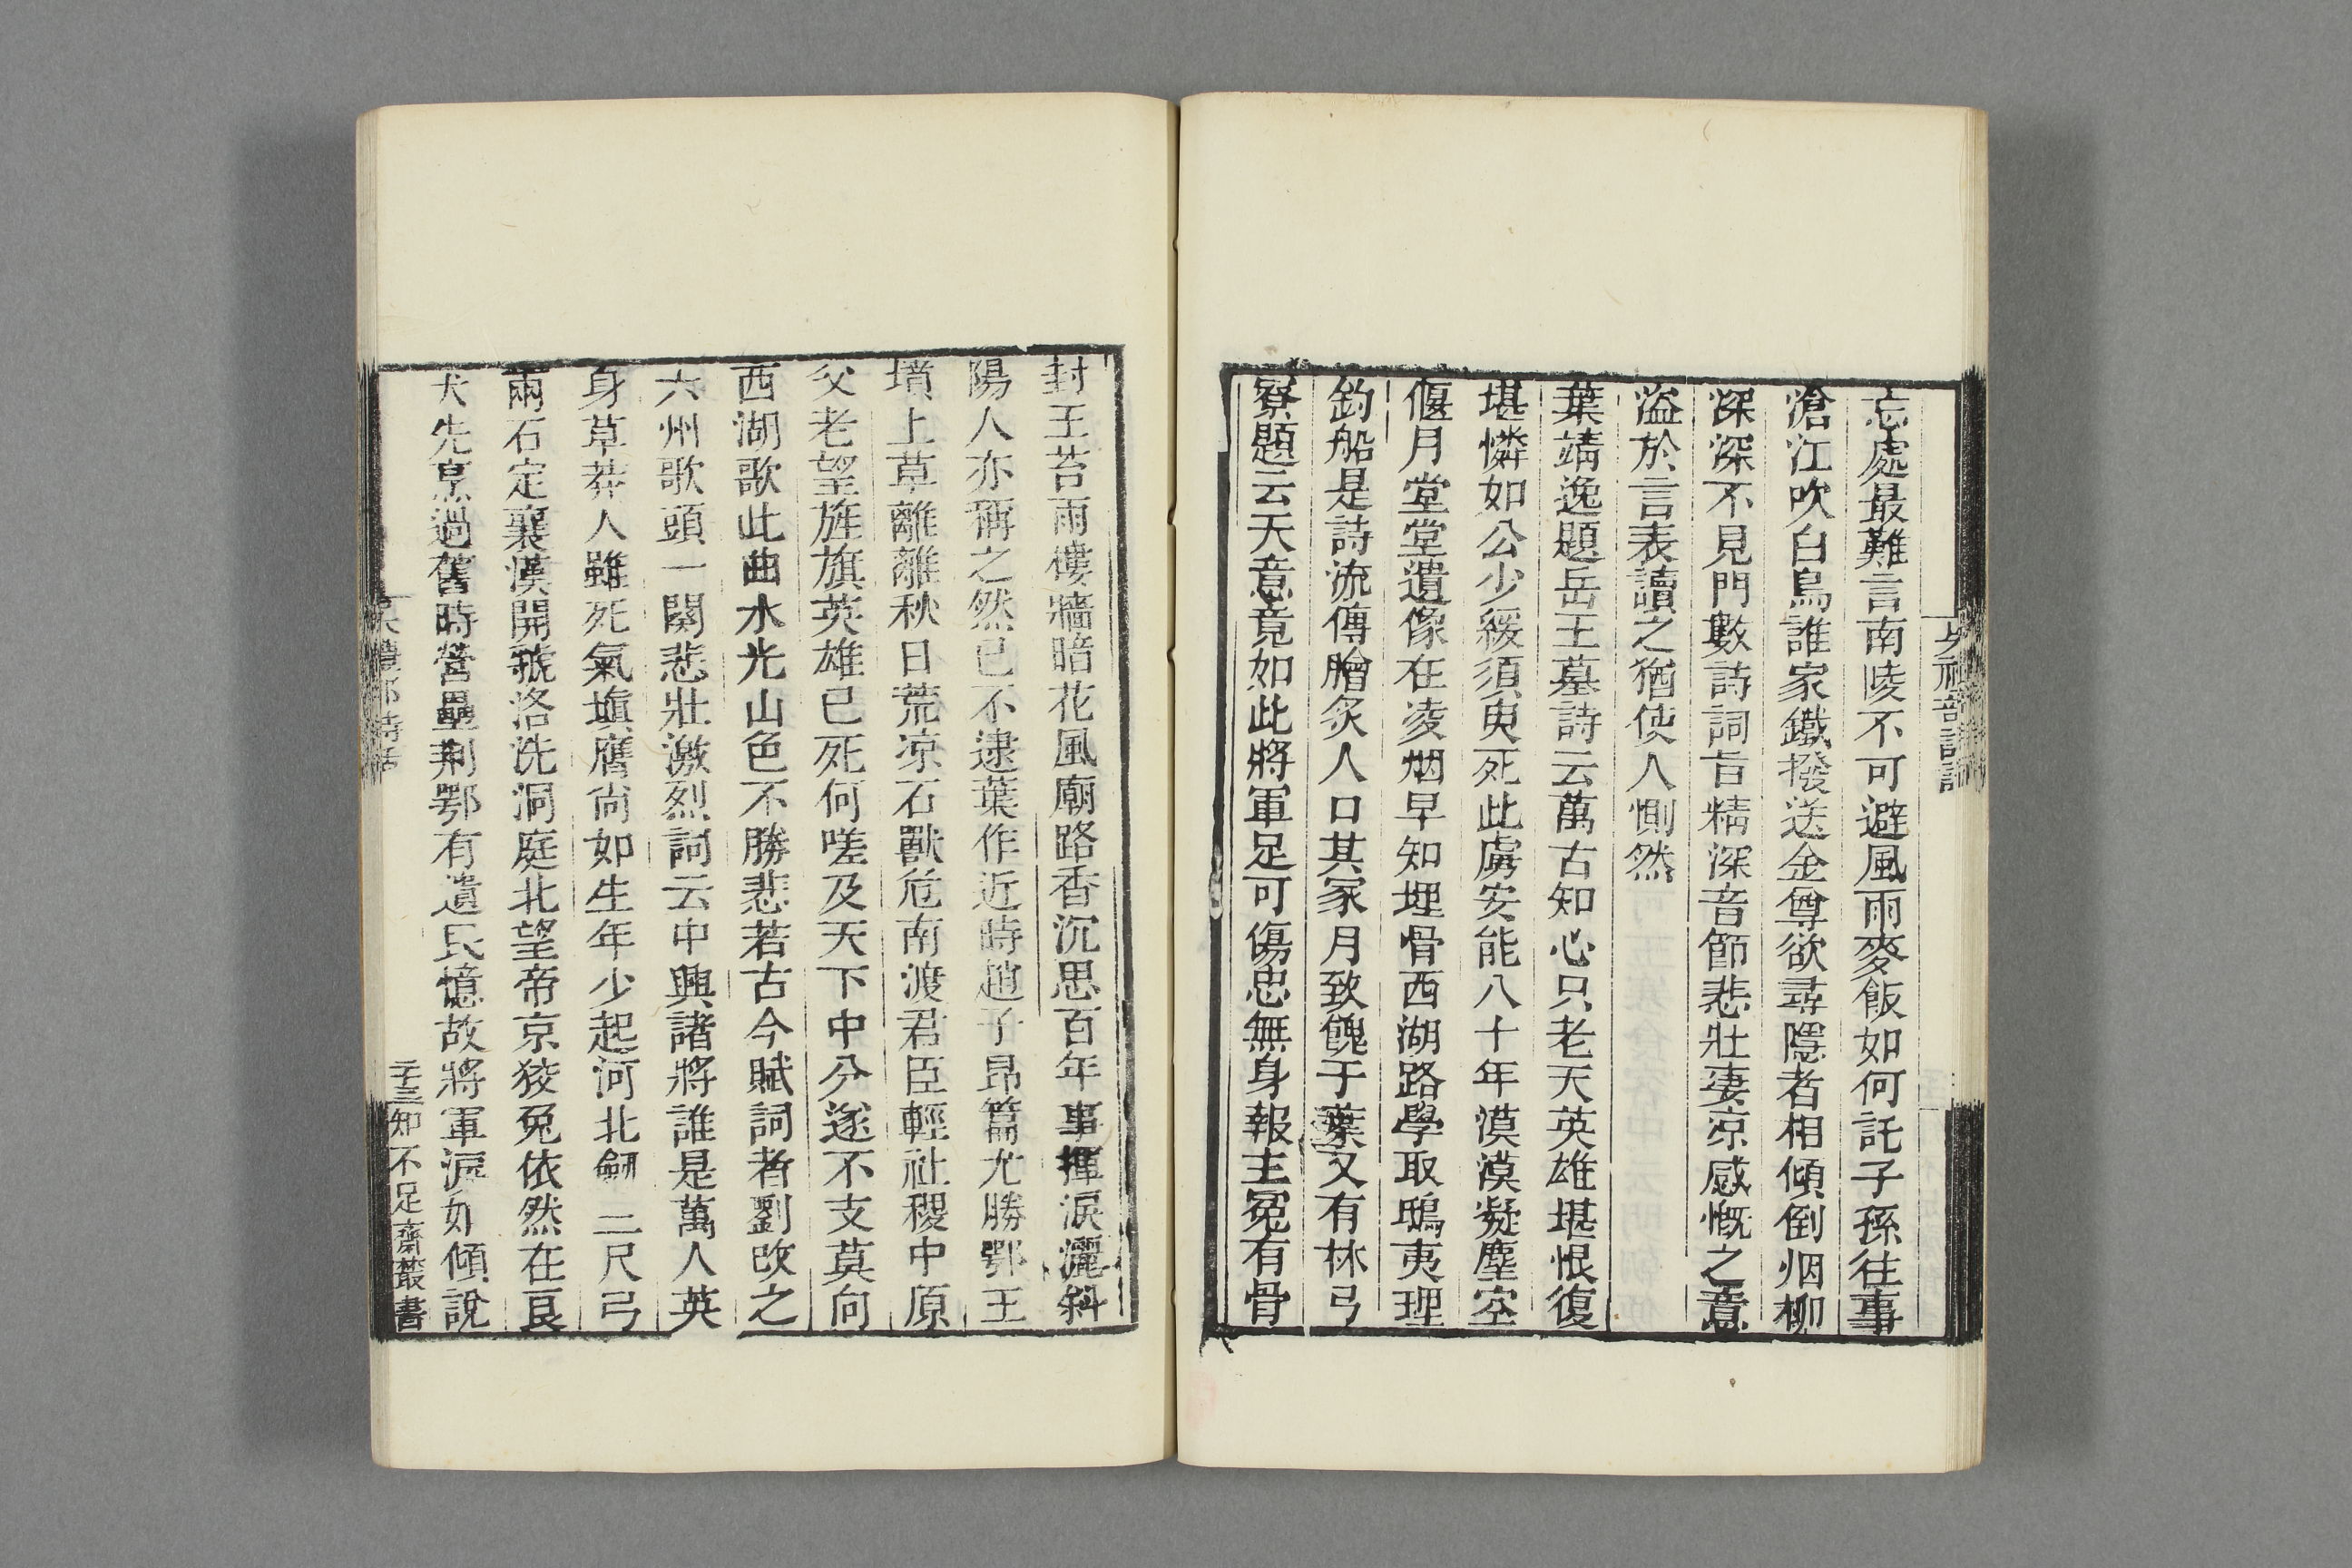 忘處最難言南陵不可避風雨麥飯如何託子孫往事
滄江吹白鳥誰家鐵撥送金尊欲尋隱者相傾倒烟柳
深深不見門數詩詞旨精深音節悲壯凄凉感慨之意
溢於言表讀之猶使人惻然
葉靖逸題岳王墓詩云萬古知心只老天英雄堪恨復
堪憐如公少緩須臾死此虜安能八十年漠漠凝塵空
偃月堂堂遺像在凌烟早知埋骨西湖路學取鴟夷理
釣船是詩流傳膾炙人口其冢月致餽于葉又有林弓
寮題云天意竟如此將軍足可傷忠無身報主冤有骨
封王苔雨樓牆暗花風廟路香沉思百年事揮淚灑斜
陽人亦稱之然已不逮葉作近時趙子昂篇尤勝鄂王
墳上草離離秋日荒凉石獸危南渡君臣輕社稷中原
父老望旌旗英雄已死何嗟及天下中分遂不支莫向
西湖歌此曲水光山色不勝悲若古今賦詞者劉改之
六州歌頭一闋悲壯激烈詞云中興諸將誰是萬人英
身草莽人雖死氣塡膺尙如生年少起河北劒三尺弓
兩石定襄漢開虢洛洗洞庭北望帝京狡兔依然在良
犬先烹過舊時營壘荆鄂有遺民憶故將軍淚如傾說
吳禮部詩話
知不足齋叢書